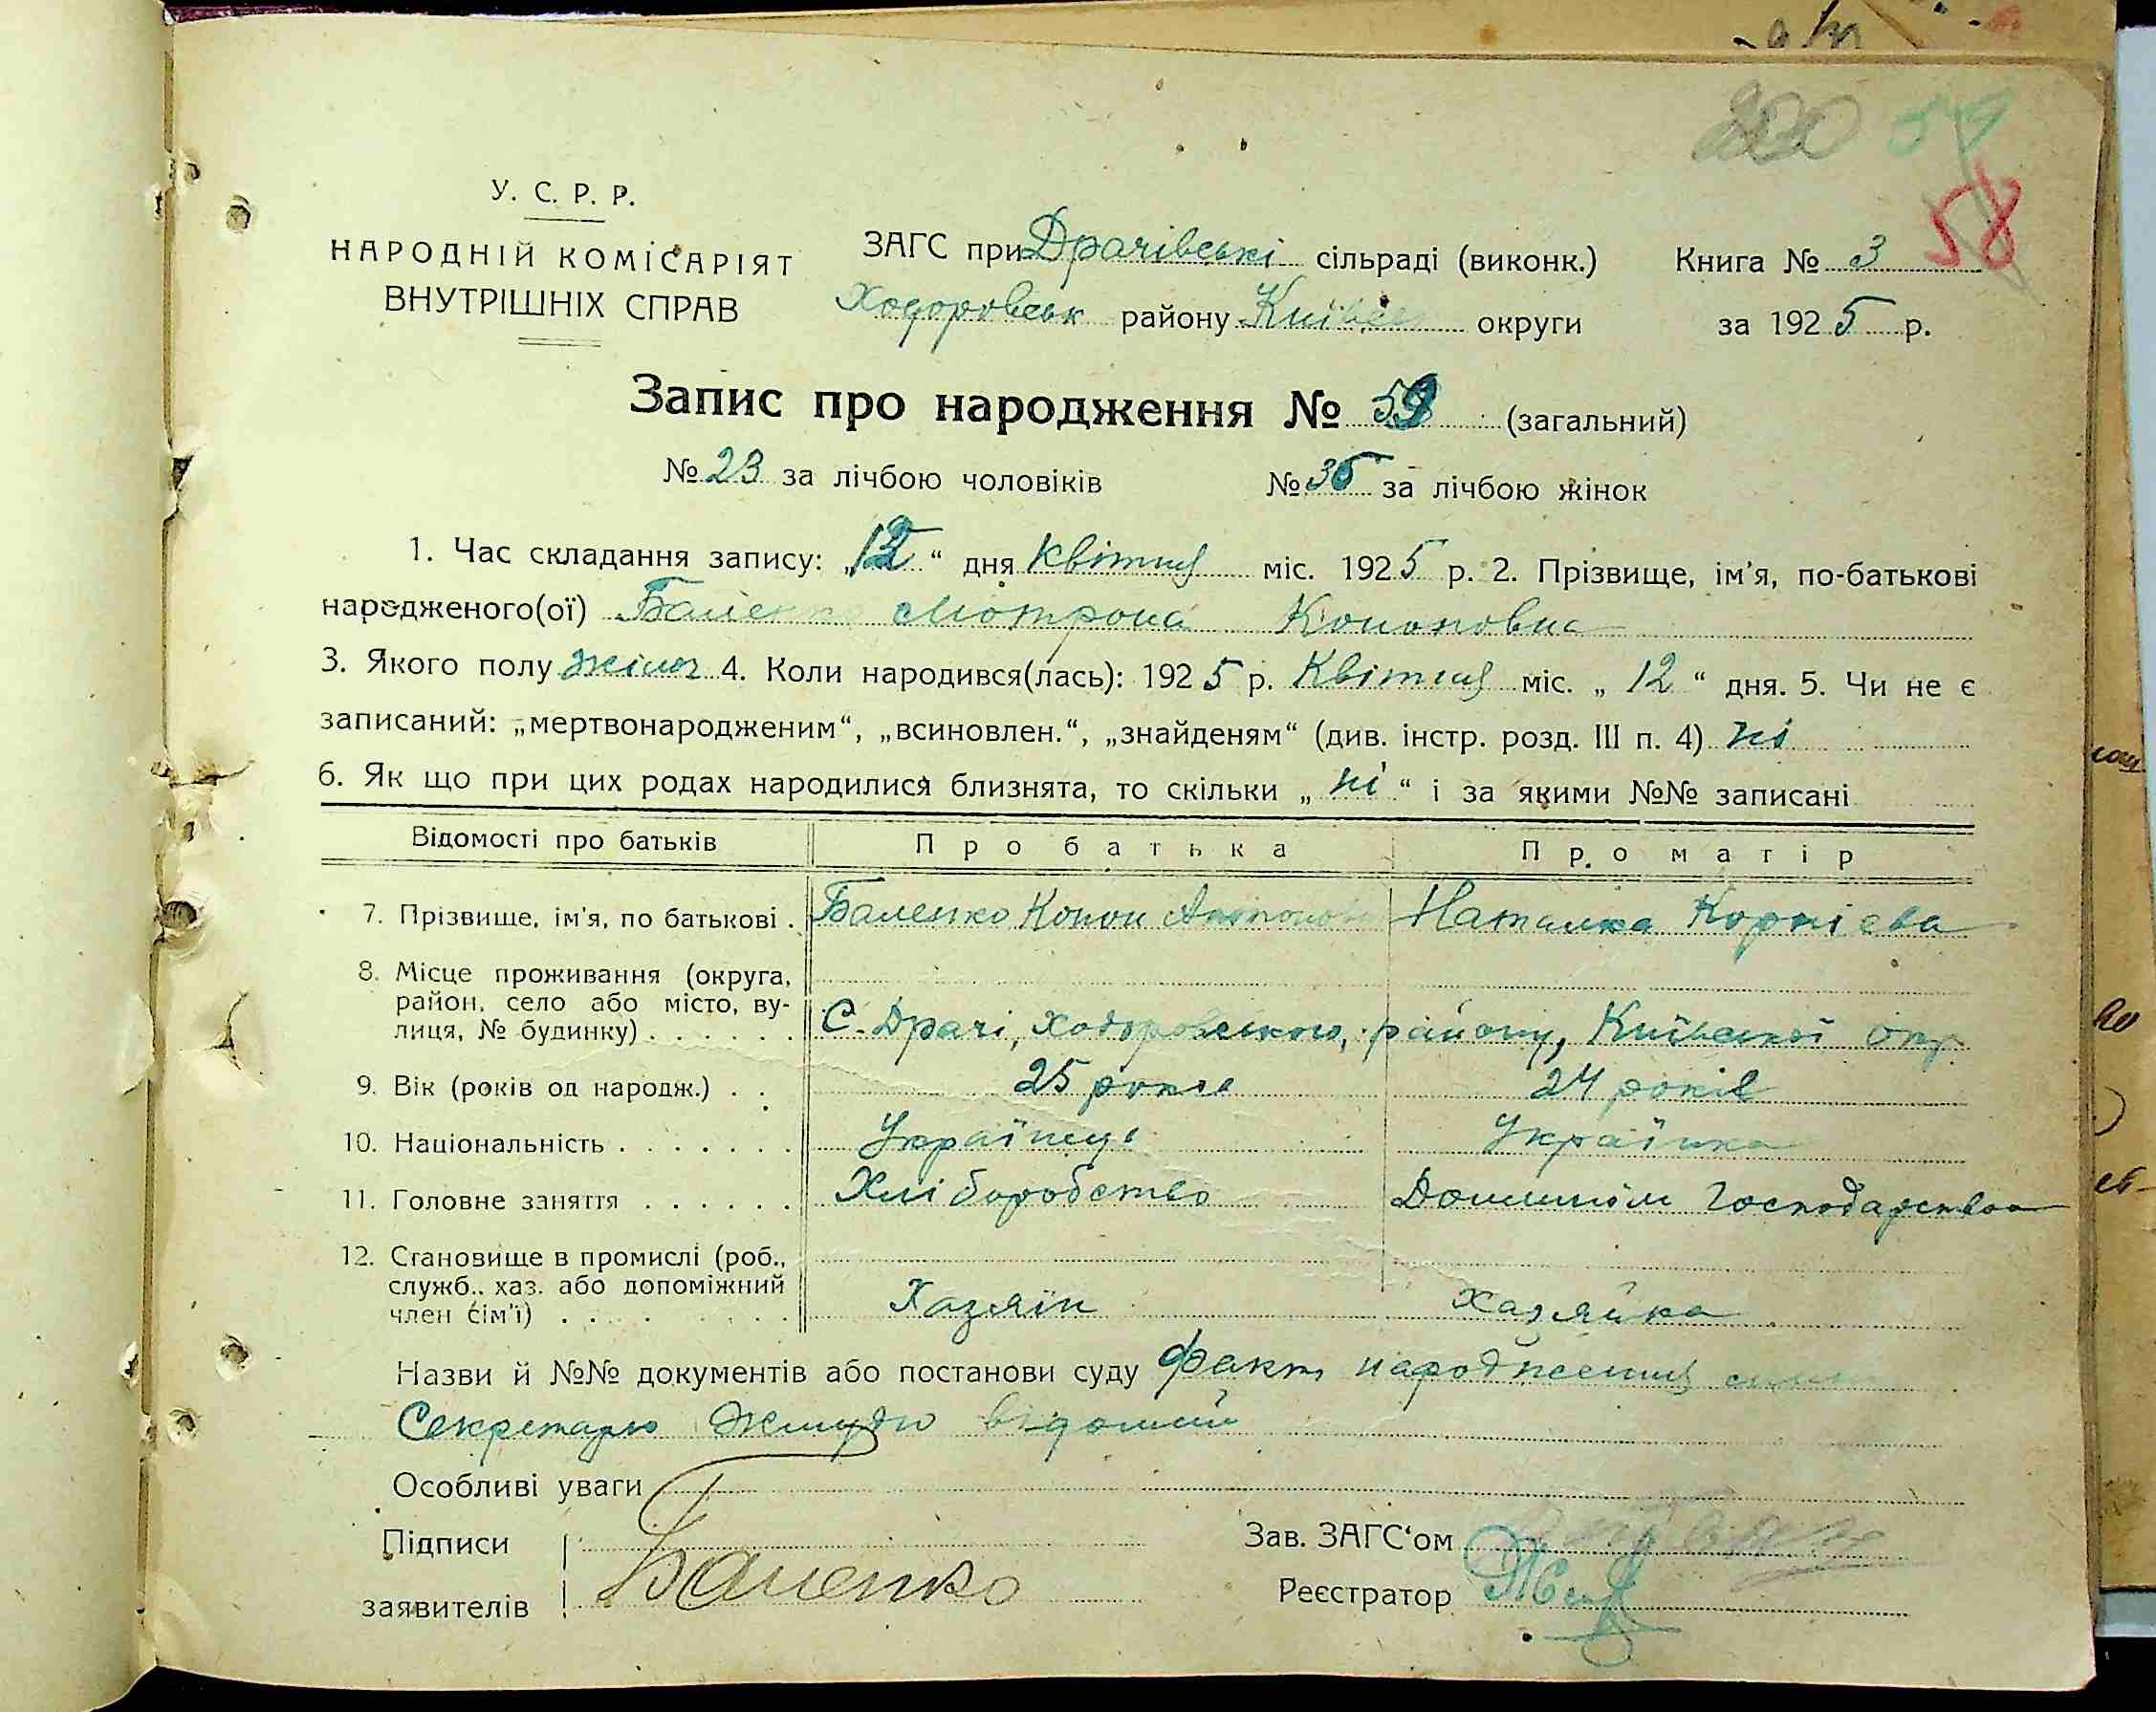 58
У. С. Р. Р.
НАРОДНІЙ КОМІСАРІЯТ
ВНУТРІШНІХ СПРАВ
ЗАГС при Драчівські сільраді (виконк.)
Ходоровськ району Київськ округи
Книга № 3
за 1925 р.
Запис про народження № 59 (загальний)
№ 23 за лічбою чоловіків № 35 за лічбою жінок
1. Час складання запису: „12“ дня Квітня міс. 1925 р. 2. Прізвище, ім'я, по-батькові
народженого(ої) Баленко Мотрона Кононовна
3. Якого полу жіноч 4. Коли народився(лась): 1925 р. Квітня міс. „12“ дня. 5. Чи не є
записаний: „мертвонародженим“, „всиновлен.“, „знайденям“ (див. інстр. розд. III п. 4) ні
6. Як що при цих родах народилися близнята, то скільки „ні“ і за якими №№ записані
Відомості про батьків Про батька Про матір
7. Прізвище, ім'я, по батькові . Баленко Конон Антонов Наталка Корнієва
8. Місце проживання (округа,
район, село або місто, ву-
лиця, № будинку) . . . . . . С. Драчі, Ходоровського, району, Київської окр
9. Вік (років од народж.) . . 25 років 24 років
10. Національність . . . . . . . Українець Українка
11. Головне заняття . . . . . . Хліборобство Домашнім Господарством
12. Становище в промислі (роб.,
служб., хаз. або допоміжний
член сім'ї) . . . . . . Хазяїн Хазяйка
Назви й №№ документів або постанови суду Факт народження
Секретарю Жмудю відомий
Особливі уваги
Підписи
заявителів Баленко
Зав. ЗАГС'ом
Реєстратор